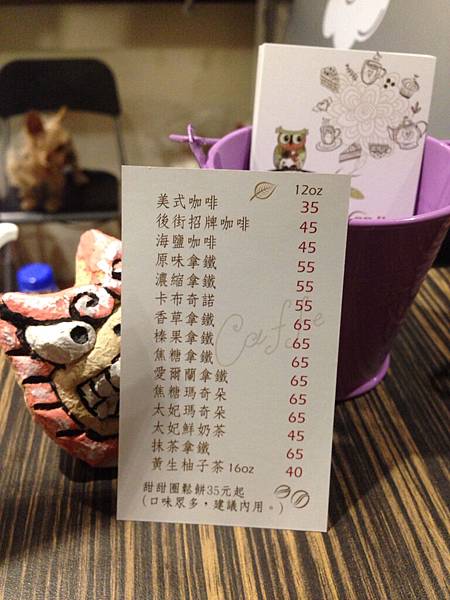 12oz
美式咖啡 35
後街招牌咖啡 45
海鹽咖啡 45
原味拿鐵 55
濃縮拿鐵 55
卡布奇諾 55
香草拿鐵 65
榛果拿鐵 65
焦糖拿鐵 65
愛爾蘭拿鐵 65
焦糖瑪奇朵 65
太妃瑪奇朵 65
太妃鮮奶茶 45
抹茶拿鐵 65
黃生柚子茶 16oz 40
甜甜圈鬆餅35元起
(口味眾多，建議內用。)